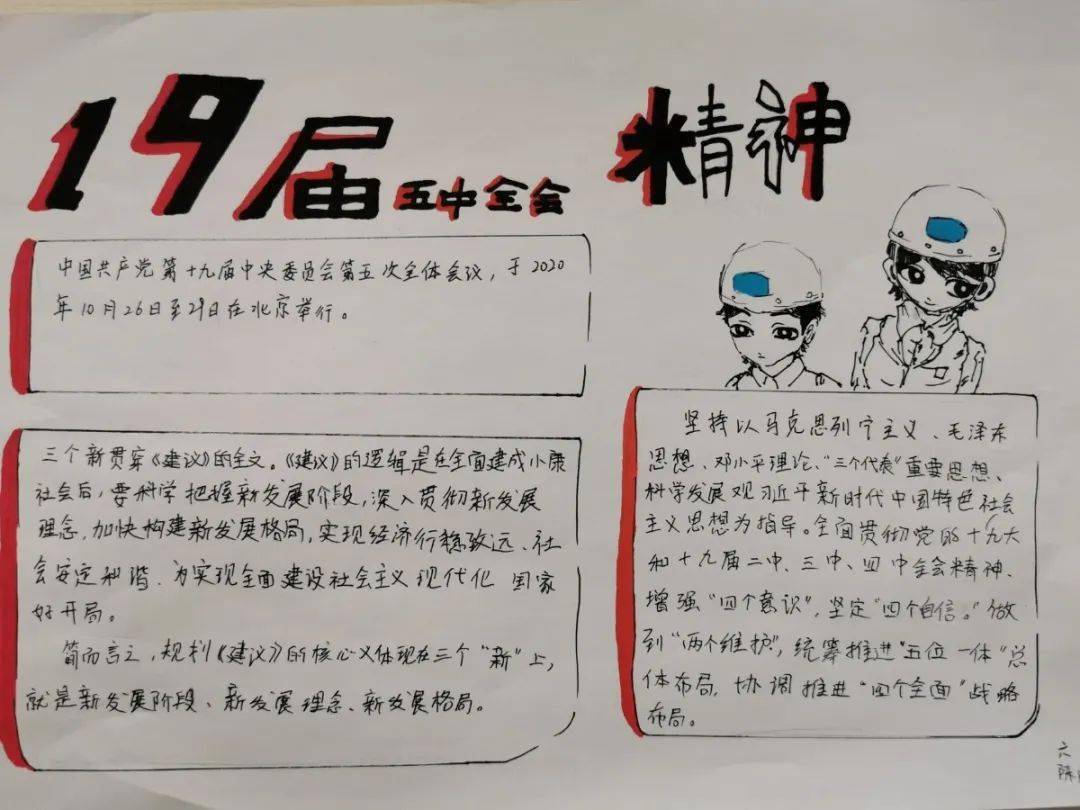 19届五中全会 精神
中国共产党第十九届中央委员会第五次全体会议，于2020
年10月26日至29日在北京举行。
三个新贯穿《建议》的全文。《建议》的逻辑是在全面建成小康
社会后，要科学把握新发展阶段，深入贯彻新发展
理念，加快构建新发展格局，实现经济行稳致远、社
会安定和谐、为实现全面建设社会主义现代化 国家
好开局。
简而言之，规划《建议》的核心义体现在三个“新”上，
就是新发展阶段、新发展理念、新发展格局。
坚持以马克思列宁主义、毛泽东
思想、邓小平理论、“三个代表”重要思想、
科学发展观习近平新时代中国特色社会
主义思想为指导。全面贯彻党的十九大
和十九届二中、三中、四中全会精神、
增强“四个意识”，坚定“四个自信。”做
到“两个维护”，统筹推进“五位一体”总
体布局，协调推进“四个全面”战略
布局。
六
陈